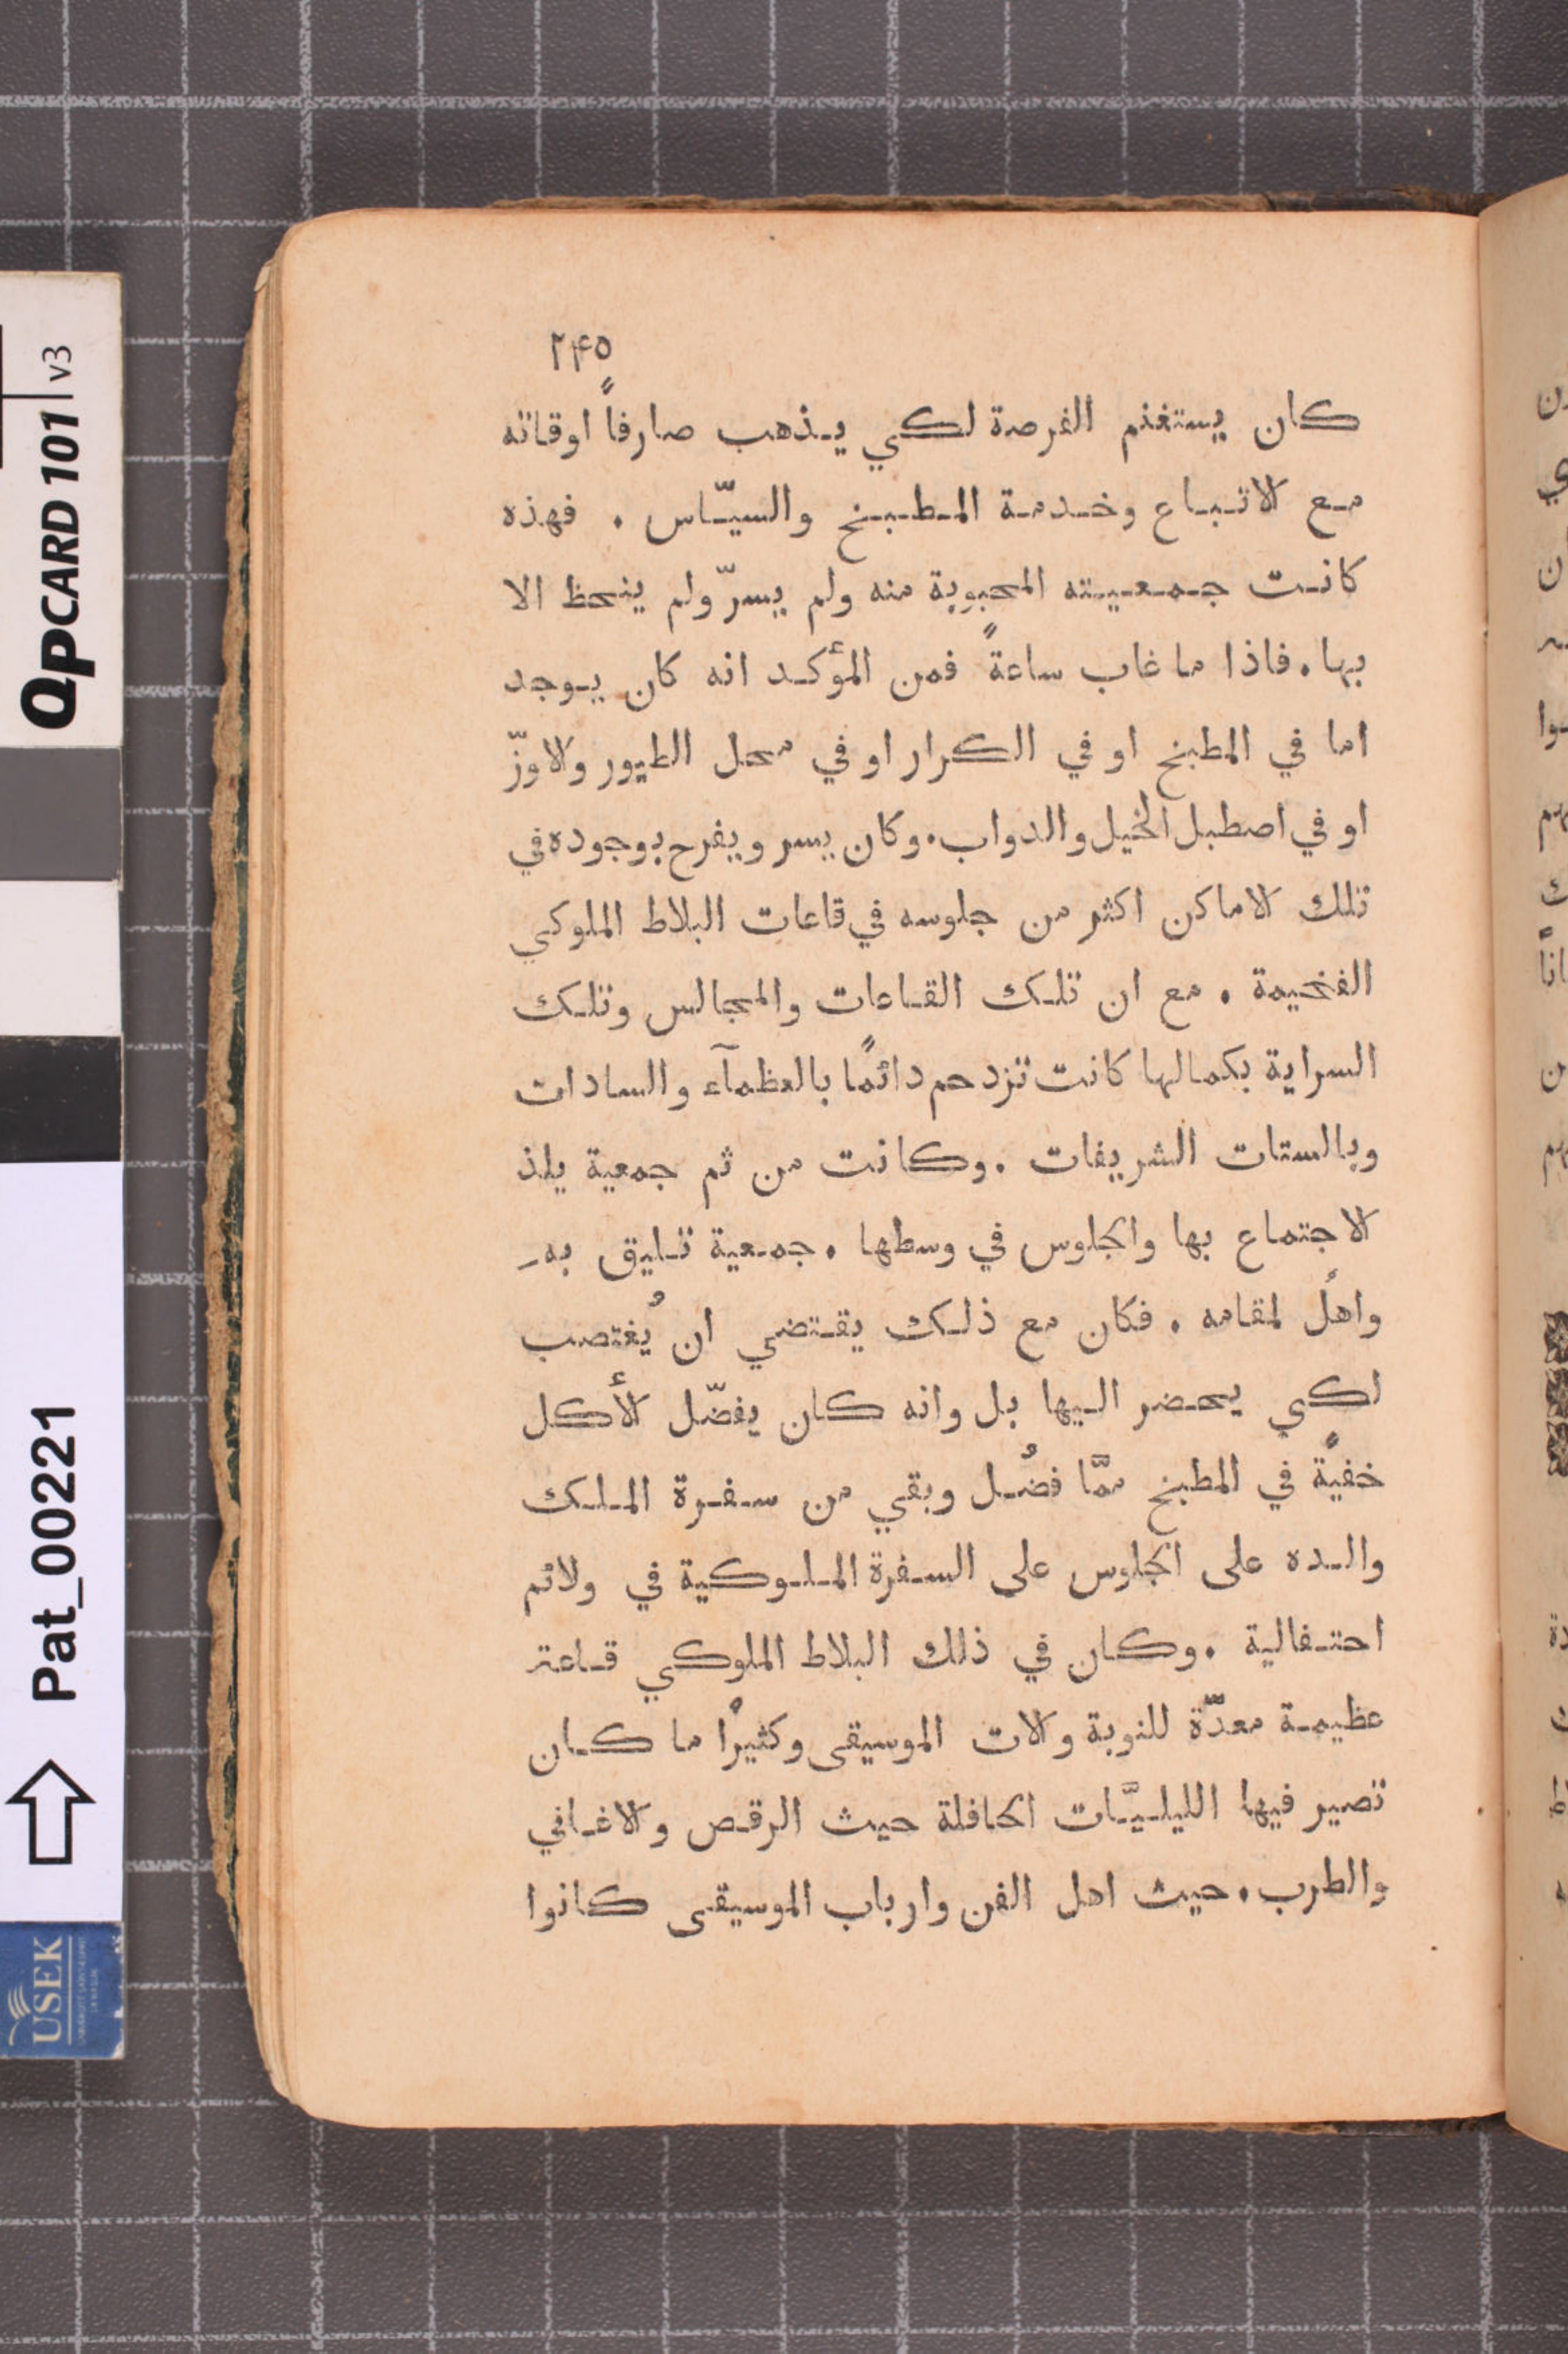 ٢٤٥
كان يستغنم الفرصة لكي يذهب صارفاً اوقاته
مع الاتباع وخدمة المطبخ والسيّاس . فهذه
كانت جمعيته المحبوبة منه ولم يسرّ ولم ينحظ الا
بها . فاذا ما غاب ساعةً فمن المؤكد انه كان يوجد
اما في المطبخ او في الكرار او في محل الطيور والاوزّ
او في اصطبل الخيل والدواب . وكان يسر ويفرح بوجوده في
تلك الاماكن اكثر من جلوسه في قاعات البلاط الملوكي
الفخيمة . مع ان تلك القاعات والمجالس وتلك
السراية بكمالها كانت تزدحم دائمًا بالعظمآء والسادات
وبالستات الشريفات . وكانت من ثم جمعية يلذ
الاجتماع بها والجلوس في وسطها . جمعية تليق به
واهلً لمقامه . فكان مع ذلك يقتضي ان يُغتصب
لكي يحضر اليها بل وانه كان يفضّل الأكل
خفيةً في المطبخ ممَّا فضُل وبقي من سفرة الملك
والده على الجلوس على السفرة الملوكية في ولائم
احتفالية . وكان في ذلك البلاط الملوكي قاعة
عظيمة معدَّة للنوبة والات الموسيقى وكثيرًا ما كان
تصير فيها الليليَّات الحافلة حيث الرقص والاغاني
والطرب . حيث اهل الفن وارباب الموسيقى كانوا
QPCARD 101 v3
Pat_00221
USEK